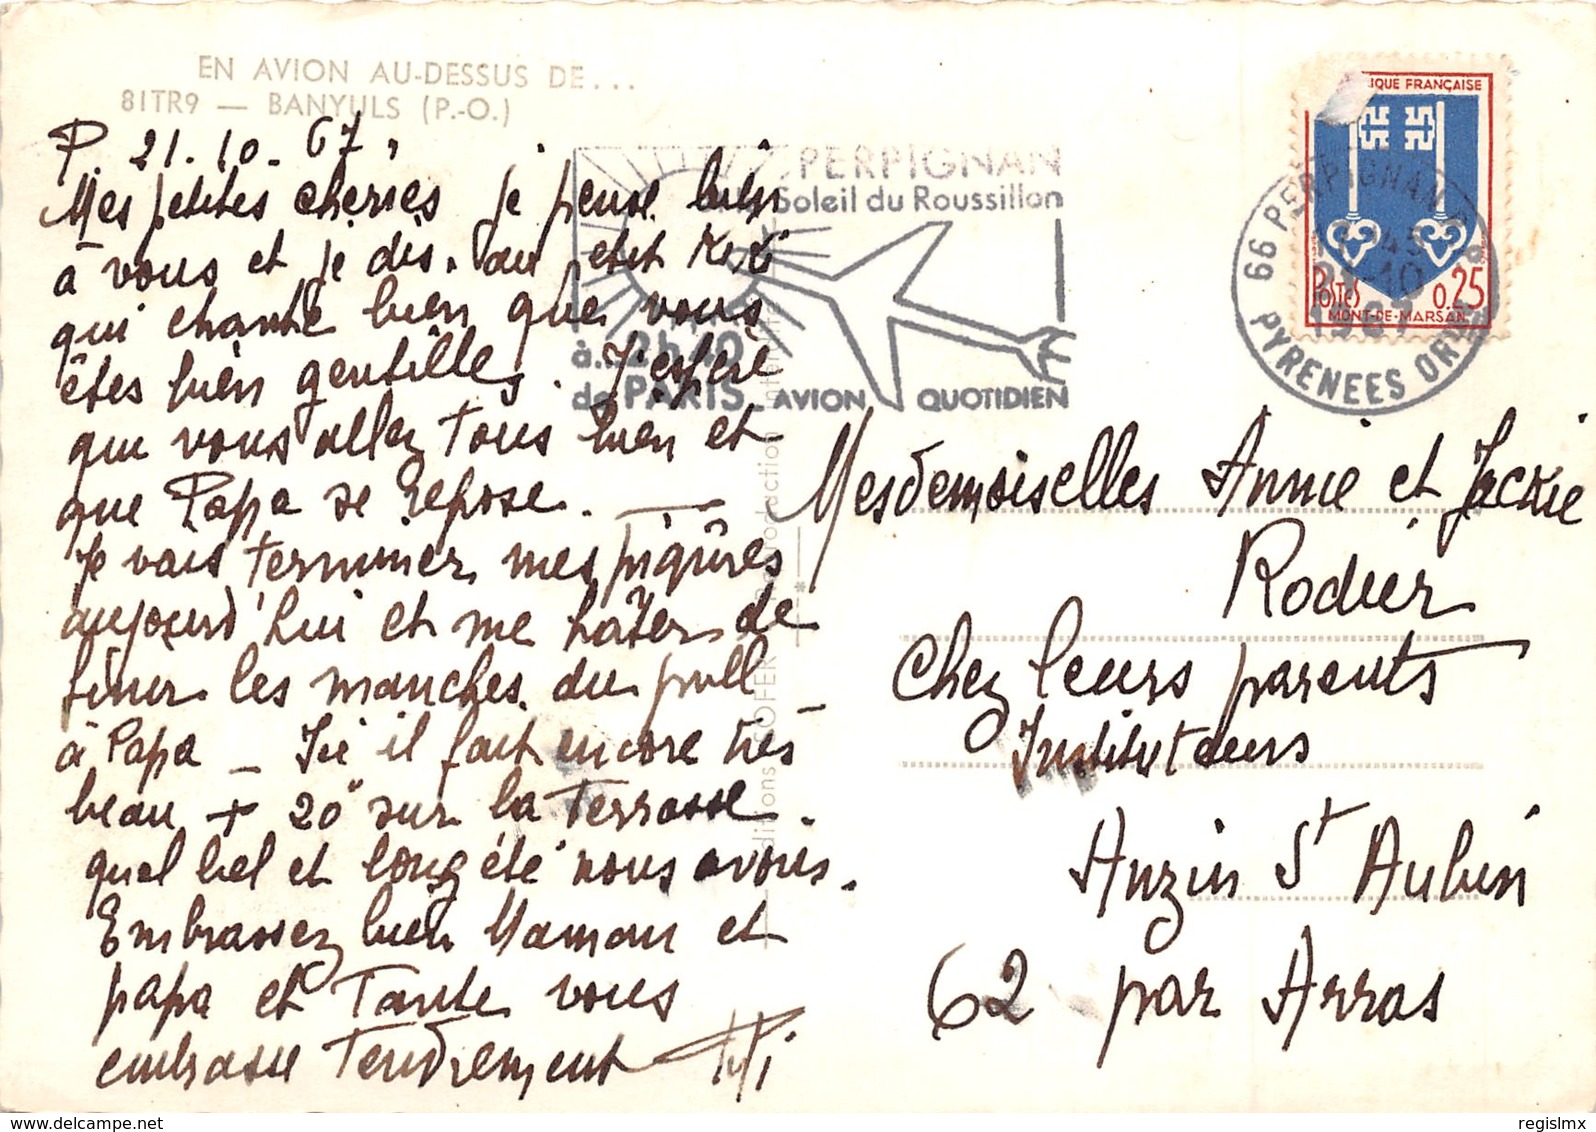 EN AVION AU-DESSUS DE...
81TR9 — BANYULS (P.-O.)
P. 21.10-67,
Mes petites cheries je pense bien
à vous et je dis. au petit Kiki
qui chante bien que vous
êtes bien gentilles. J'espère
que vous allez tous bien et
que Papa se repose. —
Je vais terminer mes piqûres
aujourd'hui et me hâter de
finir les manches du pull
à Papa — Ici il fait encore très
beau + 20° sur la terrasse.
quel bel et long été nous avons.
Embrassez bien Maman et
papa et Tante vous
embrasse Tendrement
PERPIGNAN
Soleil du Roussillon
à... 2h40
de PARIS AVION QUOTIDIEN
66 PERPIGNAN
PYRENEES OR
10
IQUE FRANÇAISE
POSTES 0,25
MONT-DE-MARSAN
Mesdemoiselles Annie et Jackie
Rodier
Chez leurs parents
Instituteurs
Anzin St Aubin
62 par Arras
regislmx